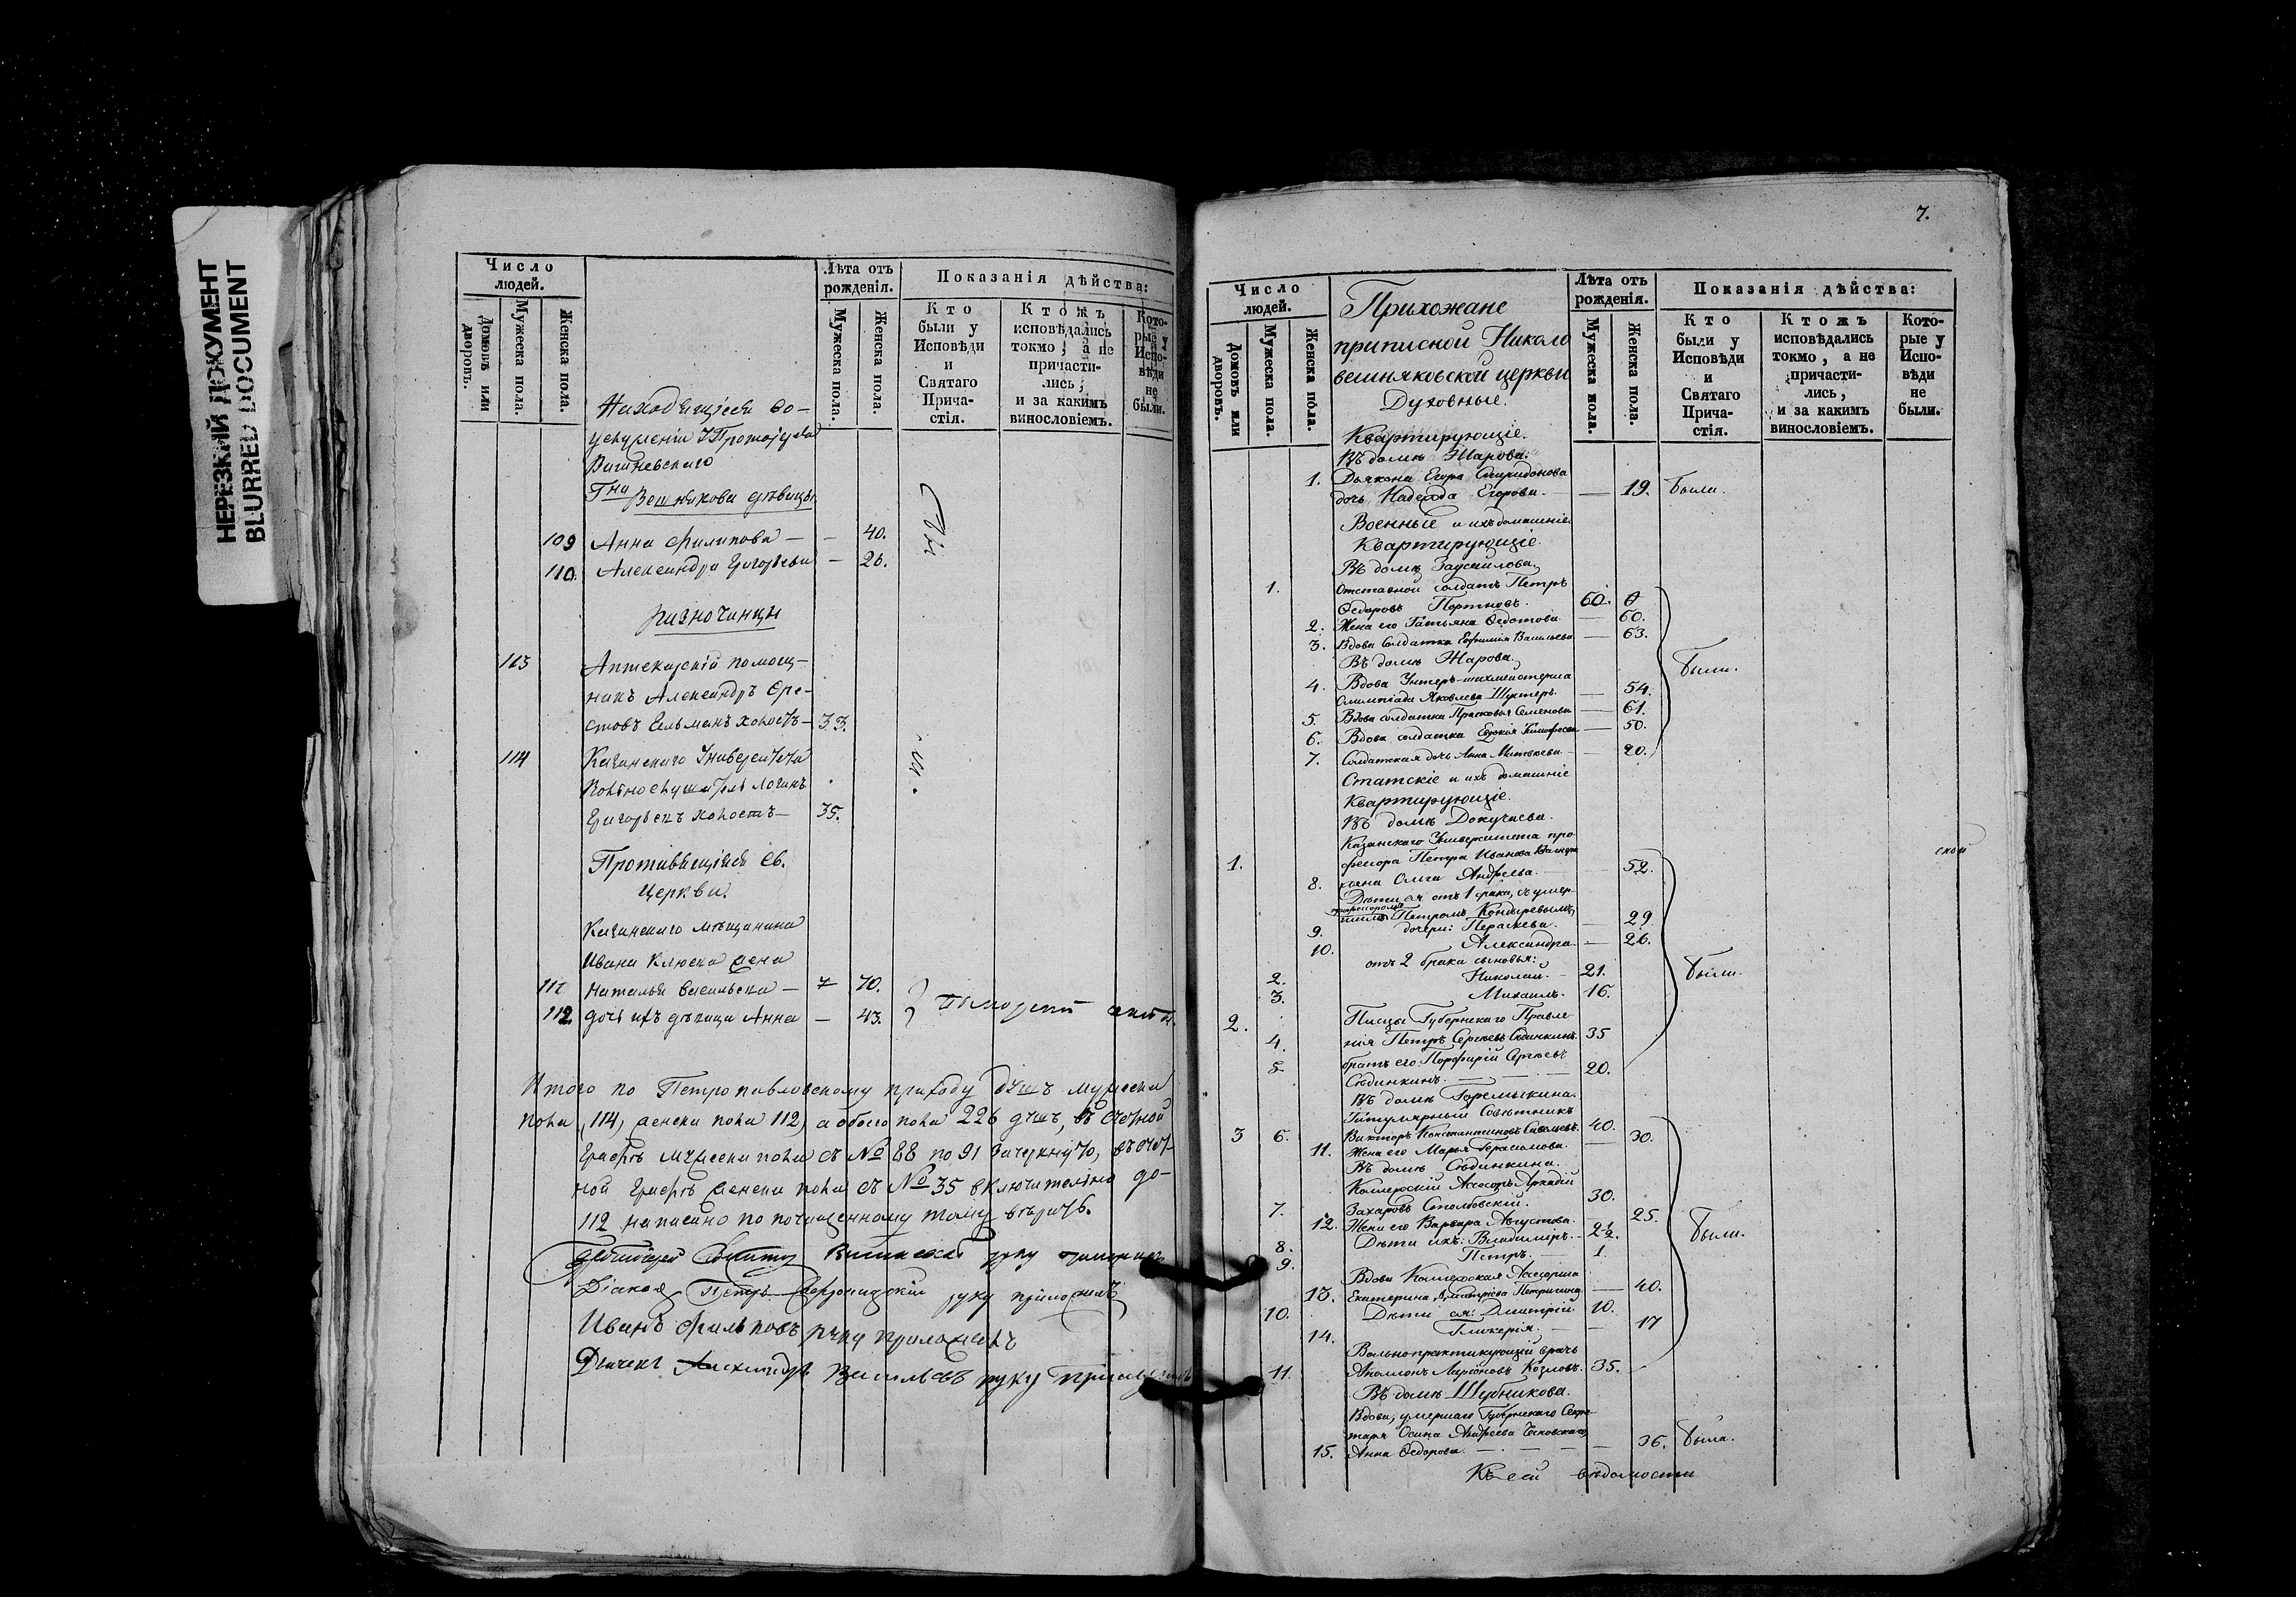 НЕРЕЗКИЙ ДОКУМЕНТ
BLURRED DOCUMENT
Число людей.
Домовъ или дворовъ.
Мужеска пола.
Женска пола.
Лѣта отъ рожденія.
Мужеска пола.
Женска пола.
Показанія дѣйства:
Кто были у Исповѣди и Святаго Прича-стія.
Ктожъ исповѣдались токмо, а не причасти-лись, и за какимъ винословіемъ.
Кото-рые у Испо-вѣди не были.
Находящіеся во-
услуженіи у Протоіерея
Вишневскаго
Г-на Вешнякова дѣвицы
109 Анна Филипова — — 40.
110. Александра Григорьева — 26.
Разночинцы
113 Аптекарскій помощ-
никъ Александръ Оре-
стовъ Гельманъ холостъ — 33.
114 Казанскаго Университета
Вольнослушатель Логинъ
Григорьевъ холостъ — 35.
Противящіяся св.
Церкви.
Казанскаго мѣщанина
Ивана Клюева жена
111 Наталья Васильева — 70.
112 дочь ихъ дѣвица Анна — 43.
Поморской секты.
Итого по Петропавловскому приходу душъ мужеска
пола (114) женска пола 112) а обоего пола 226 душъ, въ счетной
графѣ мужеска пола съ № 88 по 91 зачеркнуто, въ счет-
ной графѣ женска пола съ № 35 включительно до-
112 написано по почищенному тому вѣрить.
Вишневскій руку приложилъ
Діаконъ Петръ руку приложилъ
Иванъ Филиповъ руку приложилъ
Дьячекъ Александръ Васильевъ руку приложилъ
7.
Число людей.
Домовъ или дворовъ.
Мужеска пола.
Женска пола.
Лѣта отъ рожденія.
Мужеска пола.
Женска пола.
Показанія дѣйства:
Кто были у Исповѣди и Святаго Прича-стія.
Ктожъ исповѣдались токмо, а не причасти-лись, и за какимъ винословіемъ.
Кото-рые у Испо-вѣди не были.
Прихожане
приписной Николо
вешняковской церкви
Духовные.
Квартирующіе.
Въ домѣ Жарова.
1. Дьякона Егора Спиридонова
дочь Надежда Егорова. — — 19. Была.
Военные и ихъ домашніе.
Квартирующіе.
Въ домѣ Заусайлова.
1. Отставной солдатъ Петръ
Ѳедоровъ Портновъ. 60.
2. Жена его Татьяна Ѳедотова — 60.
3. Вдова солдатка Евфимія Васильева — 63.
Въ домѣ Жарова. Были.
4. Вдова Унтеръ-шихмейстерша
Олимпіада Яковлева Шухтеръ. — 54.
5. Вдова солдатка Прасковья Семенова — 61.
6. Вдова солдатка Евдокія — 50.
7. Солдатская дочь Анна Матвѣева. — 20.
Статскіе и ихъ домашніе
Квартирующіе.
Въ домѣ Докучаева.
Казанскаго Университета про-
1. фесора Петра Иванова Вагнера
8. жена Ольга Андреева. — 52.
Дѣти ея отъ 1 брака, съ умер-
профессоромъ
шимъ Петромъ Кондыревымъ,
9. дочери: Параскева. — 29.
10. Александра. — 26.
отъ 2 брака сыновья: Были.
2. Николай. — 21.
3. Михаилъ. — 16.
2. Писцы Губернскаго Правле-
4. нія Петръ Сергѣевъ Сединкинъ. 35
5 братъ его Порфирій Сергѣевъ
Сѣдинкинъ. — 20.
Въ домѣ Горемыкина.
Титулярный Совѣтникъ
3 6. Викторъ Константиновъ Савельевъ. 40.
11. Жена его Марья Герасимова. — 30.
Въ домѣ Сѣдинкина.
Коллежскій Асесоръ Аркадій
7. Захаровъ Столбовскій. 30.
12. Жена его Варвара Августова. 25.
8. Дѣти ихъ: Владиміръ. — 2½. Были.
9. Петръ. — 1.
Вдова Коллежская Асесорша
13. Екатерина Дмитріева Петрыгина — 40.
10. Дѣти ея: Дмитрій. 10.
14. Гликерія. — 17
Вольнопрактикующій врачь
11. Аполлонъ Ларіоновъ Козловъ. 35.
Въ домѣ Шубникова.
Вдова, умершаго Губернскаго Секре-
таря Осипа Андреева
15. Анна Ѳедорова. — — 36. Была.
Къ сей вѣдомости
ской